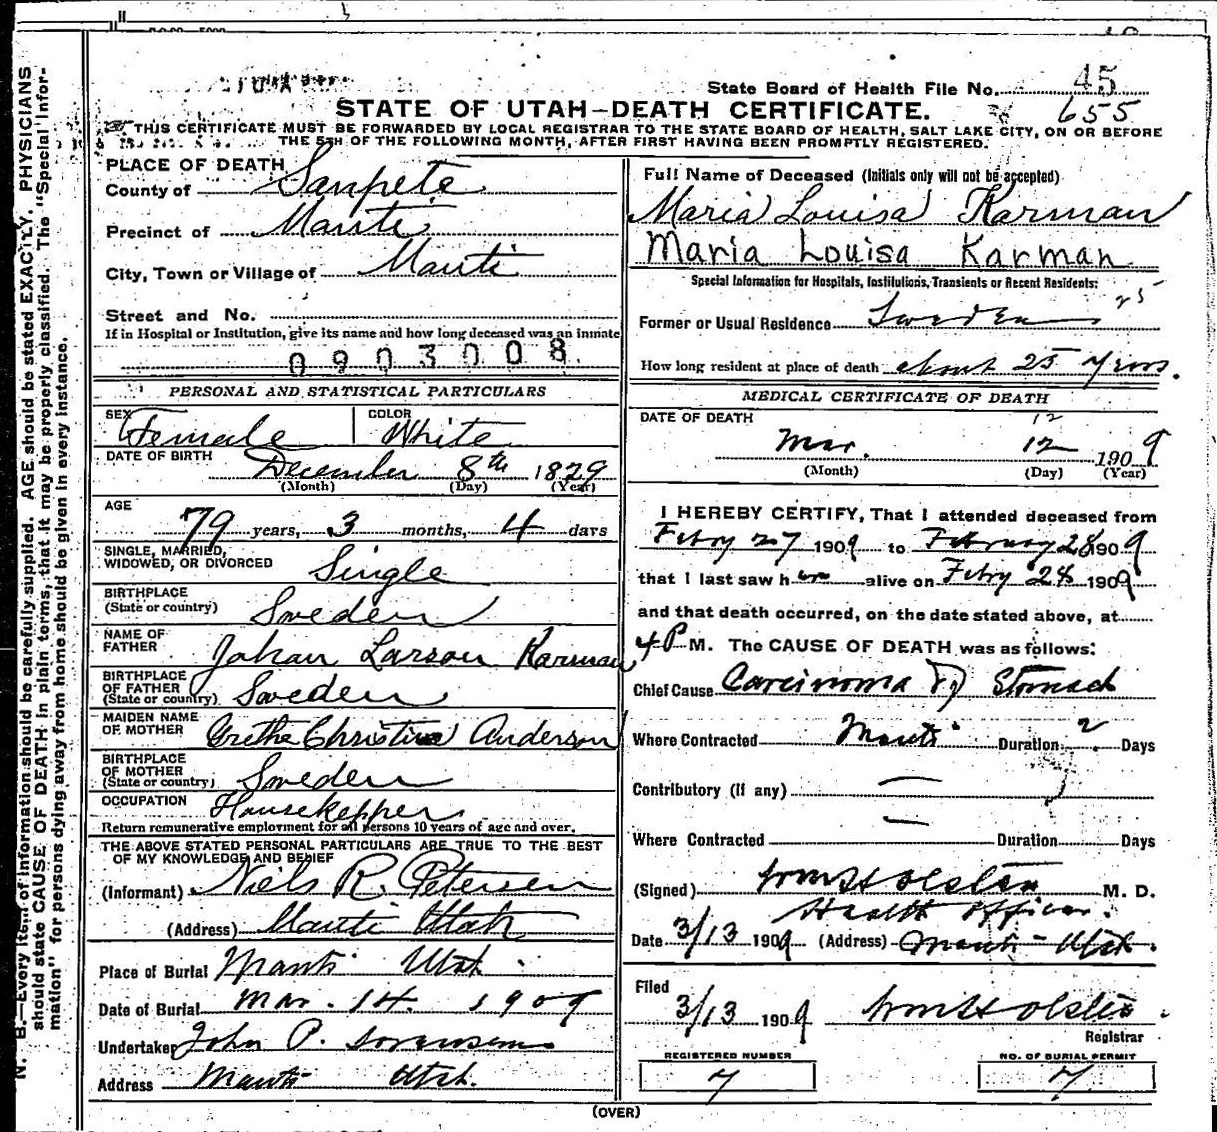 State Board of Health File No. 45
STATE OF UTAH—DEATH CERTIFICATE. 655
THIS CERTIFICATE MUST BE FORWARDED BY LOCAL REGISTRAR TO THE STATE BOARD OF HEALTH, SALT LAKE CITY, ON OR BEFORE
THE 5TH OF THE FOLLOWING MONTH, AFTER FIRST HAVING BEEN PROMPTLY REGISTERED.
N. B.—Every item of information should be carefully supplied. AGE should be stated EXACTLY. PHYSICIANS
should state CAUSE OF DEATH in plain terms, that it may be properly classified. The "Special Infor-
mation" for persons dying away from home should be given in every instance.
PLACE OF DEATH
County of Sanpete
Precinct of Manti
City, Town or Village of Manti
Street and No.
If in Hospital or Institution, give its name and how long deceased was an inmate
0903008
PERSONAL AND STATISTICAL PARTICULARS
SEX Female COLOR White
DATE OF BIRTH December 8th 1829
(Month) (Day) (Year)
AGE
79 years, 3 months, 4 days
SINGLE, MARRIED,
WIDOWED, OR DIVORCED Single
BIRTHPLACE
(State or country) Sweden
NAME OF
FATHER Johan Larson Karman
BIRTHPLACE
OF FATHER
(State or country) Sweden
MAIDEN NAME
OF MOTHER Gretha Christina Anderson
BIRTHPLACE
OF MOTHER
(State or country) Sweden
OCCUPATION Housekepper
Return remunerative employment for all persons 10 years of age and over.
THE ABOVE STATED PERSONAL PARTICULARS ARE TRUE TO THE BEST
OF MY KNOWLEDGE AND BELIEF
(Informant) Niels R. Petersen
(Address) Manti Utah
Place of Burial Manti Utah.
Date of Burial Mar. 14. 1909
Undertaker John P. Sorensen
Address Manti Utah.
Full Name of Deceased (Initials only will not be accepted)
Maria Louisa Karman
Maria Louisa Karman
Special Information for Hospitals, Institutions, Transients or Recent Residents:
Former or Usual Residence Sweden 25
How long resident at place of death about 25 years.
MEDICAL CERTIFICATE OF DEATH
DATE OF DEATH 12
Mar. 12 1909
(Month) (Day) (Year)
I HEREBY CERTIFY, That I attended deceased from
Febry 27 1909 to February 28 1909
that I last saw her alive on Febry 28 1909
and that death occurred, on the date stated above, at
4 P M. The CAUSE OF DEATH was as follows:
Chief Cause Carcinoma of Stomach
Where Contracted Manti Duration ? Days
Contributory (If any) —
Where Contracted — Duration Days
(Signed) M. D.
Health Officer.
Date 3/13 1909 (Address) Manti - Utah.
Filed
3/13 1909
Registrar
REGISTERED NUMBER NO. OF BURIAL PERMIT
7 7
(OVER)